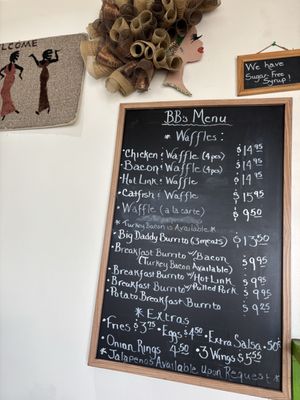 WELCOME
We have
Sugar-Free
Syrup!
BB's Menu
* Waffles:
• Chicken & Waffle (4pcs) $14.95
• Bacon & Waffle (4pcs) $14.95
• Hot Link & Waffle $14.95
• Catfish & Waffle $15.95
• Waffle (a la carte) $9.50
* Turkey Bacon is Available *
• Big Daddy Burrito (3meats) $13.50
• Breakfast Burrito w/Bacon $9.95
(Turkey Bacon Available)
• Breakfast Burrito w/Hot Link $9.95
• Breakfast Burrito w/Pulled Pork $9.95
• Potato Breakfast Burrito $9.25
* Extras
• Fries $3.75 • Eggs $4.50 • Extra Salsa .50¢
• Onion Rings 4.50 • 3 Wings $5.55
* Jalapeños Available Upon Request *